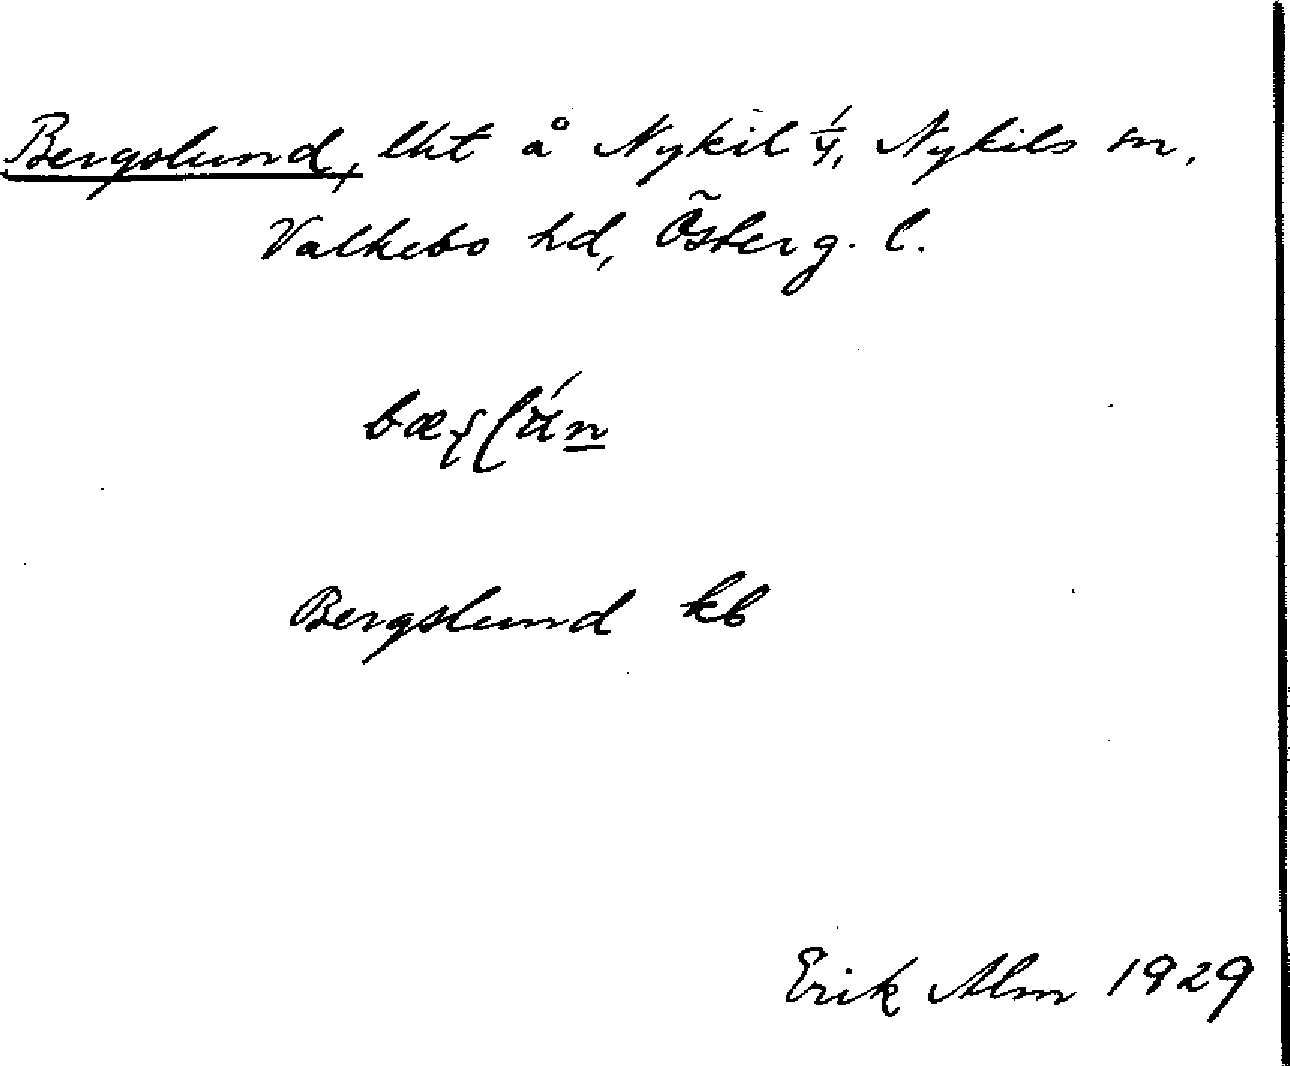 Bergslund, lht å Nykil 1/4, Nykils sn,
Valkebo hd, Österg. l.
Bergslund kb
Erik Alm 1929